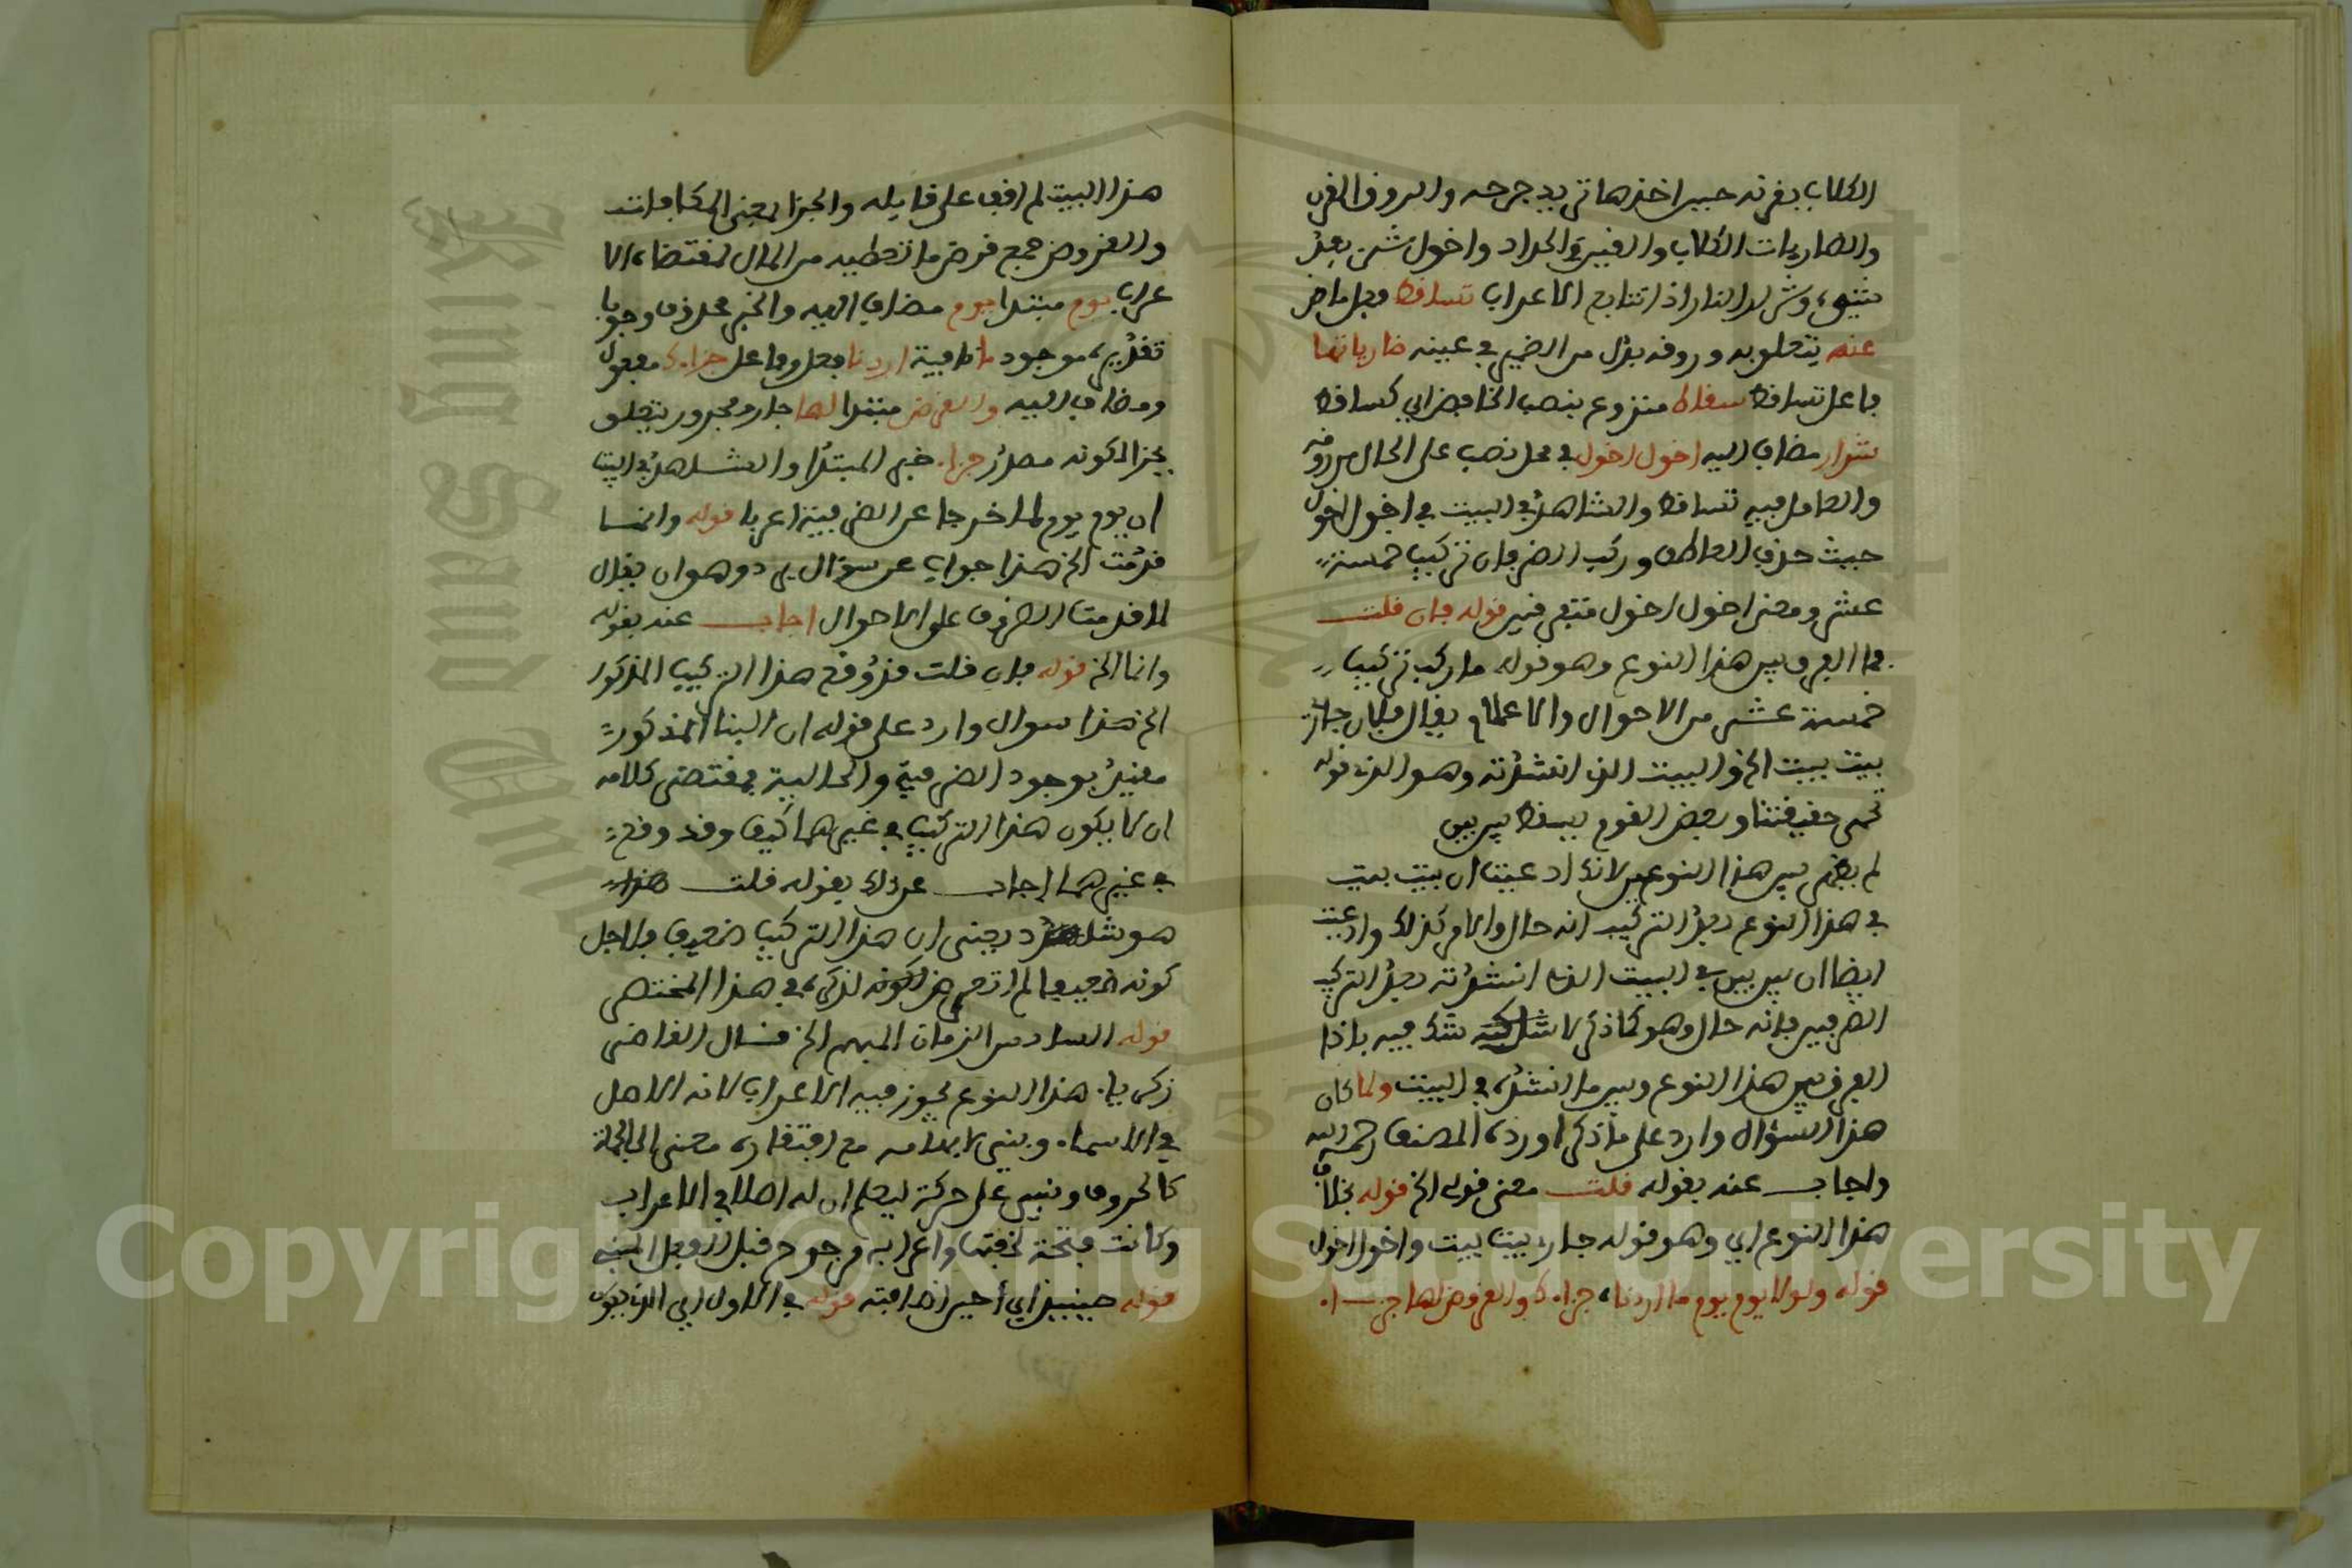 الكلاب بقرنه حين اخذها تريد جرحه والروق القرن
والضاريات الكلاب والقين الحداد واخول شيء بعد
شيء وشرار النار اذا تتابع الاعراب تساقط فعل ماض
عنه يتعلق به وروقه بدل من الضمير في عينه ضارياتها
فاعل تساقط سقاط منزوع بنصب الخافض اي كساقط
شرار مضاف اليه اخول اخول في محل نصب على الحال من روقه
والعامل فيه تساقط والشاهد في البيت في اخول اخول
حيث حذف العاطف وركب الضرفان تركيب خمسة
عشر ومعنى اخول اخول متفرقين قوله فان قلت
فما الفرق بين هذا النوع وهو قوله ما ركب تركيب
خمسة عشر من الاحوال والاعلام يقال فلان جاري
بيت بيت الخ والبيت الذي انشدته وهو الذي قوله
نحمي حقيقتنا وبعض القوم يسقط بين بين
لم يظهر بين هذا النوعين لانك ادعيت ان بيت بيت
في هذا النوع بعد التركيب انه حال والامر كذلك وادعيت
ايضا ان بين بين في البيت الذي انشدته بعد التركيب
الضرفين فانه حال وهو كما ذكر لا شك فيه باذا
الفرق بين هذا النوع وبين ما انشده في البيت ولما كان
هذا السؤال وارد على ما ذكر اورده المصنف رحمه الله
واجاب عنه بقوله قلت معنى قولي الخ قوله بخلاف
هذا النوع اي وهو قوله جاري بيت بيت واخول اخول
قوله ولولا يوم يوم ما اردنا جزاءك والقروض لها جزاء
هذا البيت لم اقف على قايله والجزا بمعنى المكافات
والقروض جمع قرض ما تعطيه من المال لتقتضاه الا
عراب يوم مبتدا يوم مضاف اليه والخبر محذوف وجوبا
تقديره موجود ما نافية اردنا فعل وفاعل جزاءك مفعول
ومضاف اليه والقروض مبتدا لها جار ومجرور يتعلق
بجزا لكونه مصدر جزاء خبر المبتدا والشاهد في البيت
ان يوم يوم لما خرجا عن الضرفية اعربا قوله وانما
قدمت الخ هذا جواب عن سؤال يرد وهو ان يقال
لم قدمت الضرف على الاحوال اجاب عنه بقوله
وانما الخ قوله فان قلت قد وقع هذا التركيب المذكور
الخ هذا سوال وارد على قوله ان البنا المذكور
مقيد بوجود الضرفية والحالية فمقتضى كلامه
ان لا يكون هذا التركيب في غيرهما كيف وقد وقع
في غيرهما اجاب عن ذلك بقوله قلت هذا
هو شاذ يعني ان هذا التركيب ضعيف فلاجل
كونه ضعيفا لم اتعرض لكونه لذكره في هذا المختصر
قوله السادس الزمان المبهم الخ قال القاضي
زكريا هذا النوع يجوز فيه الاعراب لانه الاصل
في الاسماء وبني لابهامه مع افتقاره معنى الى الجملة
كالحروف وبني على حركة ليعلم ان له اصلا في الاعراب
وكانت فتحة لخفتها واعرابه مرجوح قبل الفعل المبني
قوله حينيذ اي احين اضافته قوله في الاول اي الذي يكون